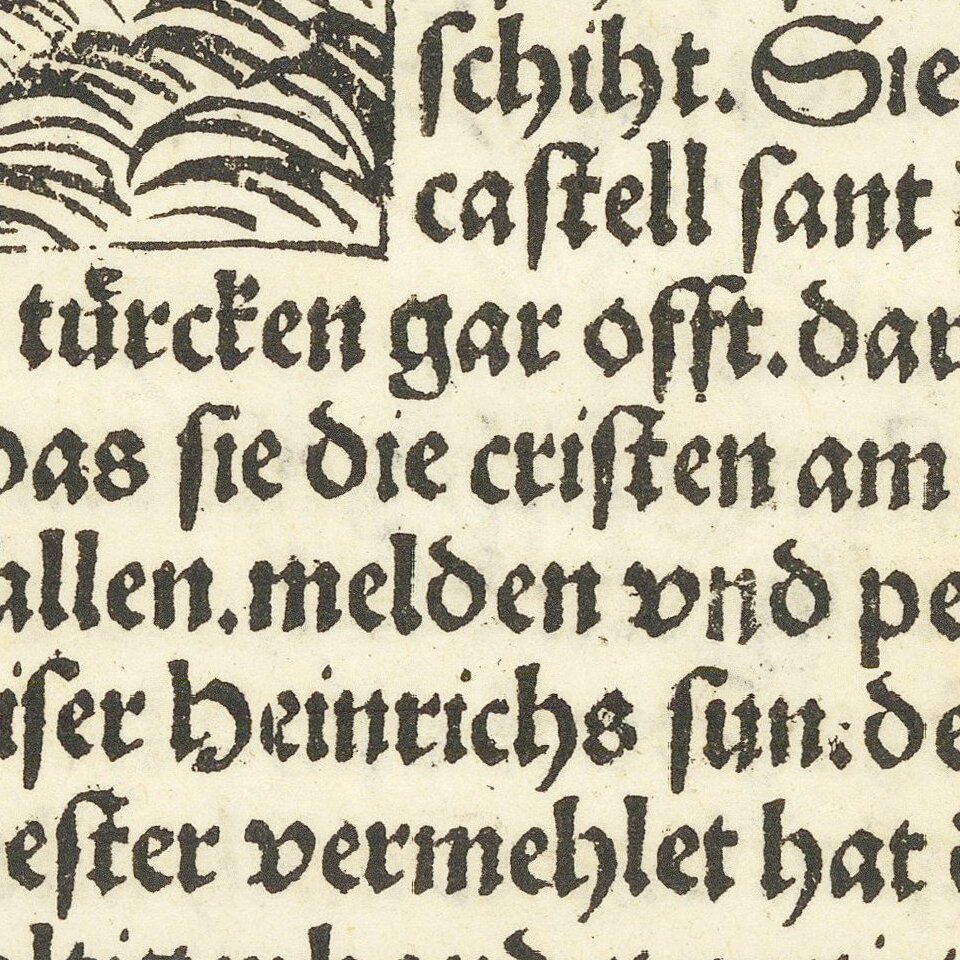 ſchiht. Sie
caſtell ſant
tuͤrcken gar offt. dar
das ſie die criſten am
allen. melden vnd pe
iſer Heinrichs ſun: de
eſter vermehlet hat